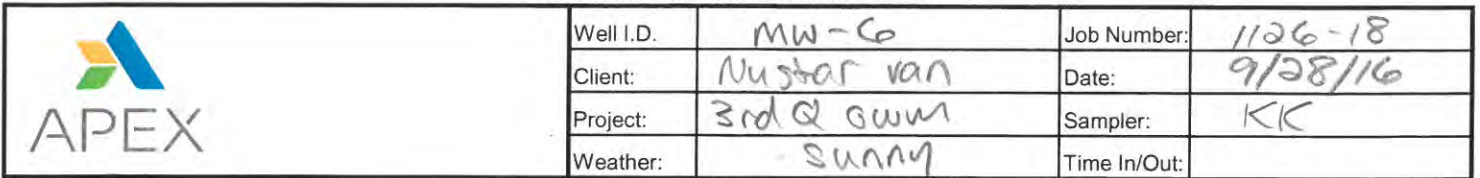 APEX
Well I.D. MW-6 Job Number: 1126-18
Client: Nustar van Date: 9/28/16
Project: 3rd Q GWM Sampler: KK
Weather: Sunny Time In/Out: